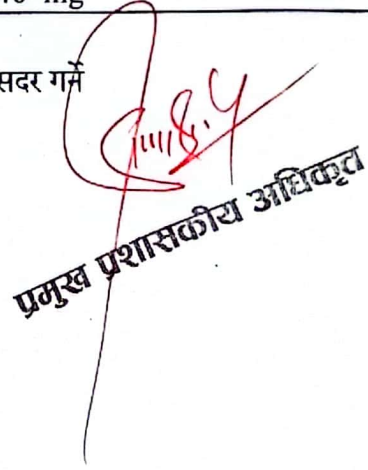 mg
सदर गर्ने
प्रमुख प्रशासकीय अधिकृत